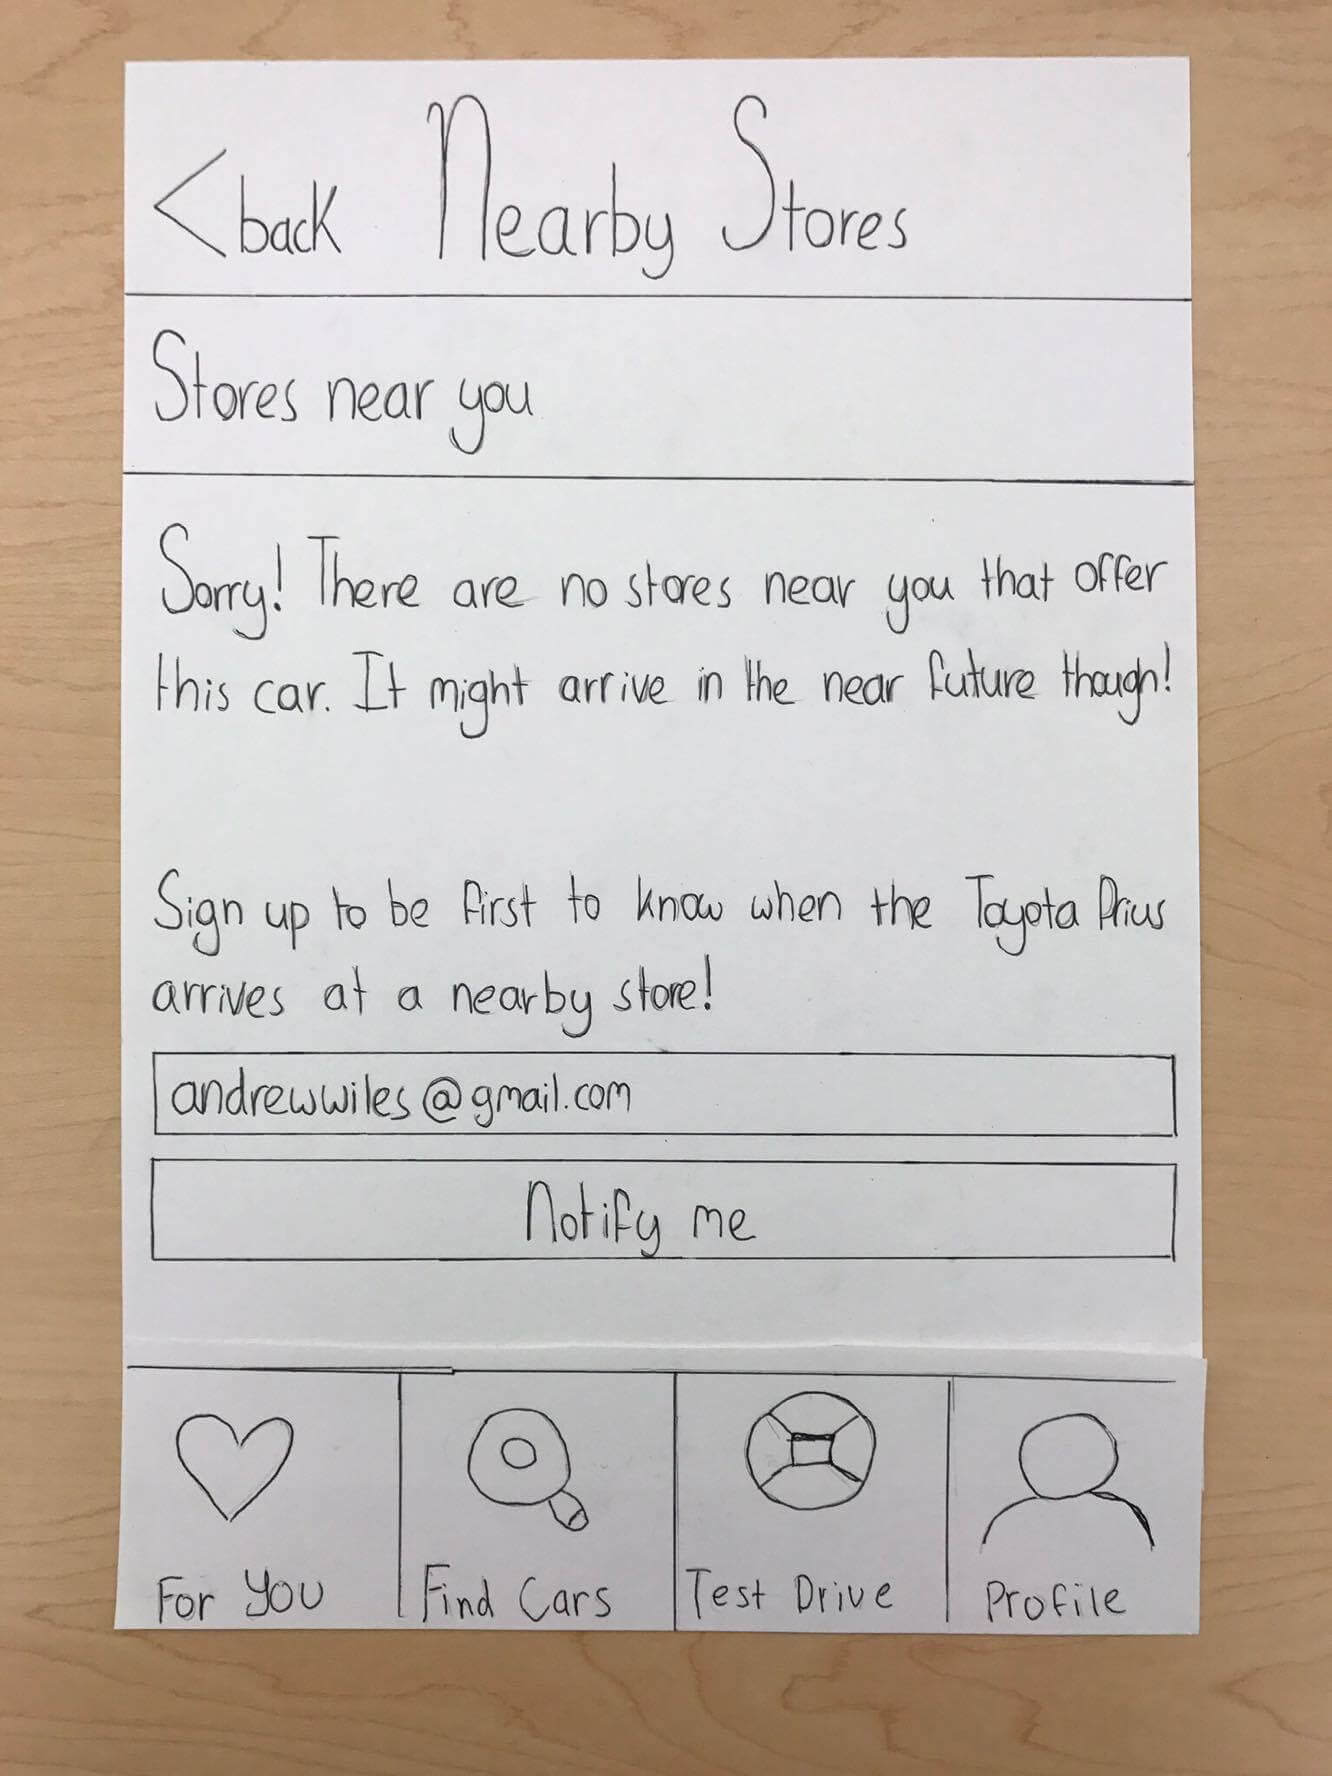 < back Nearby Stores
Stores near you
Sorry! There are no stores near you that offer
this car. It might arrive in the near future though!
Sign up to be first to know when the Toyota Prius
arrives at a nearby store!
andrewwiles@gmail.com
Notify me
For You Find Cars Test Drive Profile